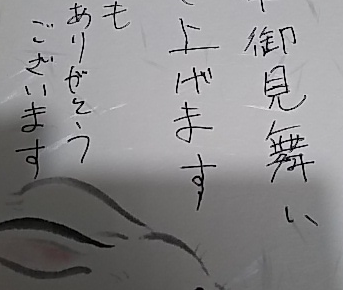 御見舞い
上げます
も
ありがとう
ございます